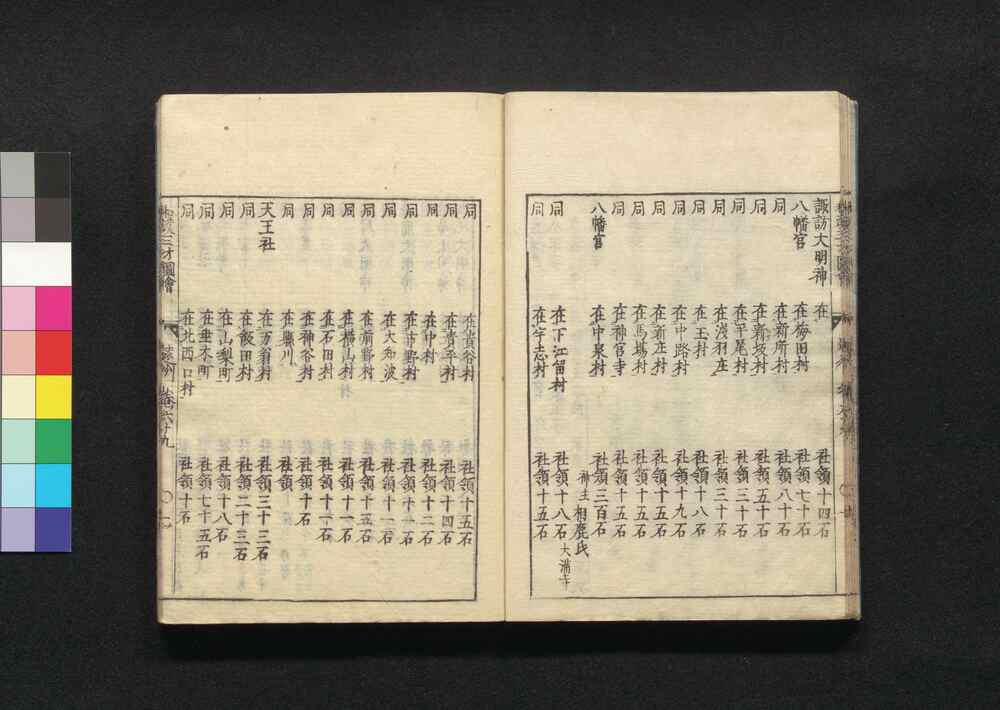 諏訪大明神 在 社領十四石
八幡宮 在梅田村 社領七十石
同 在新所村 社領八十石
同 在新坂村 社領五十石
同 在平尾村 社領三十石
同 在淺羽庄 社領三十石
同 在玉村 社領十八石
同 在中路村 社領十九石
同 在新庄村 社領十五石
同 在馬場村 社領十五石
同 在神宮寺 社領十五石
八幡宮 在中泉村 社領三百石
神主相鹿氏
同 在下江留村 社領十八石 大満寺
同 在宇志村 社領十五石
同 在黄谷村 社領十五石
同 在貴平村 社領十四石
同 在中村 社領十二石
同 在市野村 社領十一石
同 在大知波 社領十一石
同 在前野村 社領十五石
同 在橫山村 社領十一石
同 在石田村 社領十一石
同 在神谷村 社領十石
同 在川 社領
天王社 在万斛村 社領三十三石
同 在飯田村 社領二十三石
同 在山梨町 社領十八石
同 在垂木町 社領七十五石
同 在北西口村 社領十石
和漢三才圖會 遠州 卷六十九